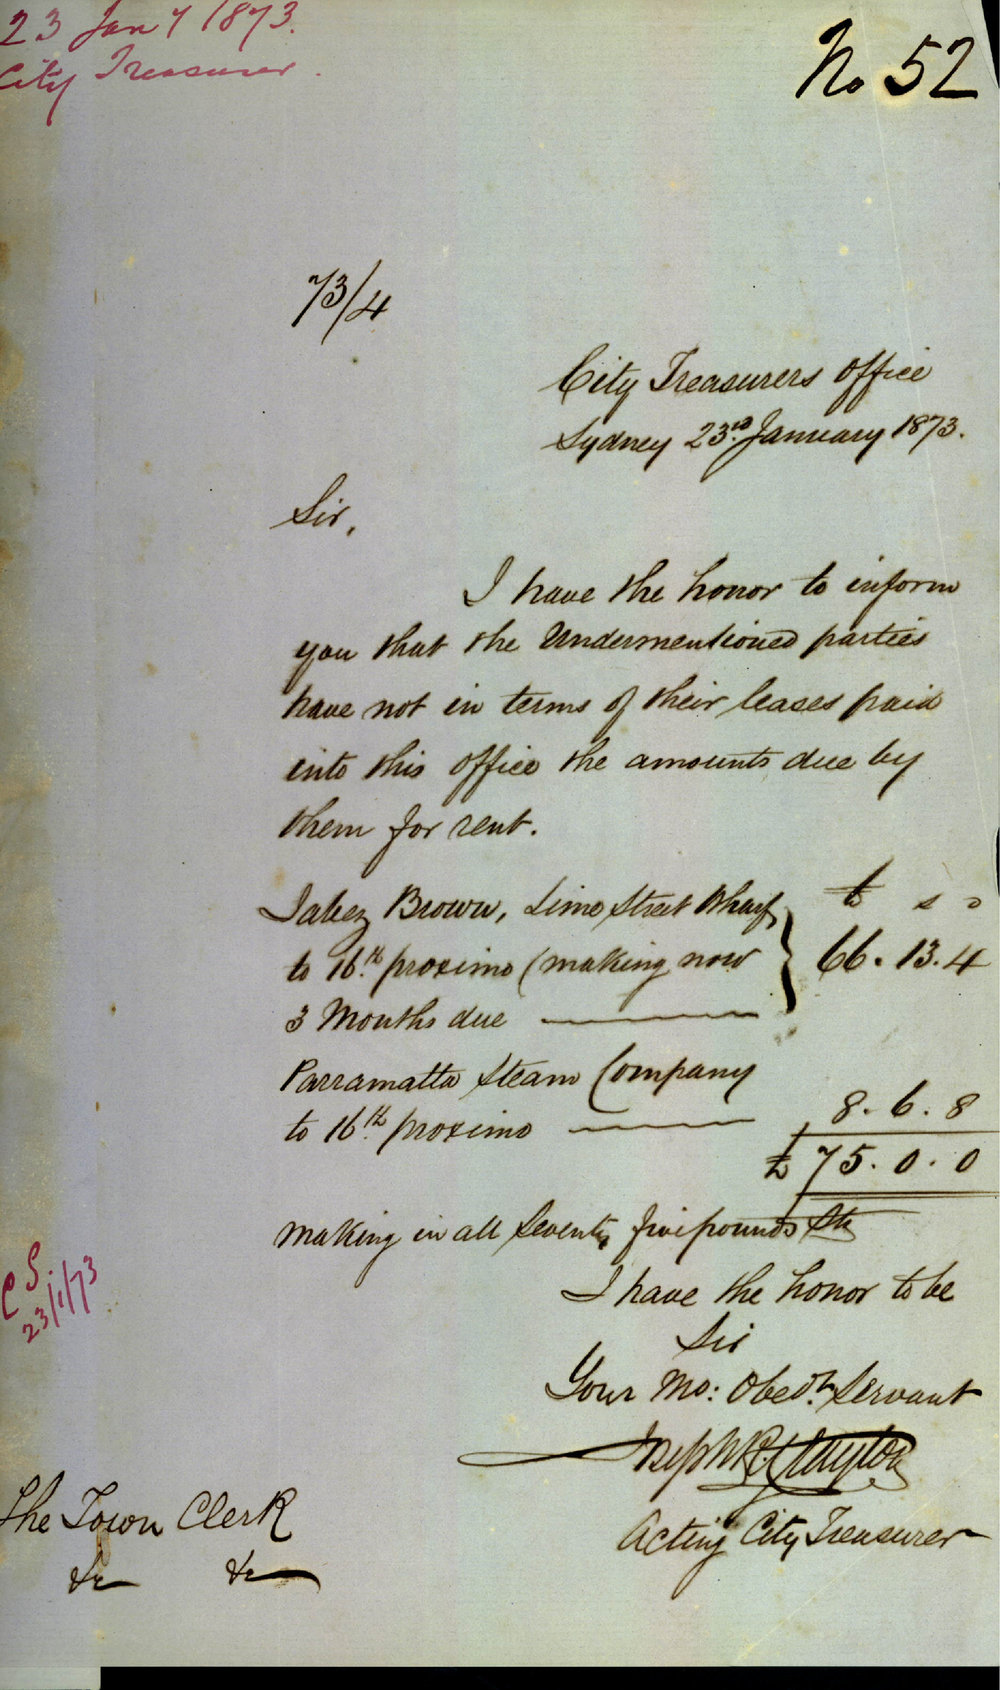 23 Jany 1873.
City Treasurer.
No 52
73/4
City Treasurers Office
Sydney 23rd. January 1873.
Sir,
I have the honor to inform
you that the Undermentioned parties
have not in terms of their leases paid
into this office the amounts due by
them for rent.
Jabez Brown, Lime Street Wharf
to 16th. proximo (making now
3 Months due
£ s d
66. 13. 4
Parramatta Steam Company
to 16th. proximo
8. 6. 8
£ 75. 0. 0
making in all Seventy five pounds Stg
I have the honor to be
Sir
Your Mo: Obedt. Servant
Joseph R. Clayton
Acting City Treasurer
C S.
23/1/73
The Town Clerk
&c &c